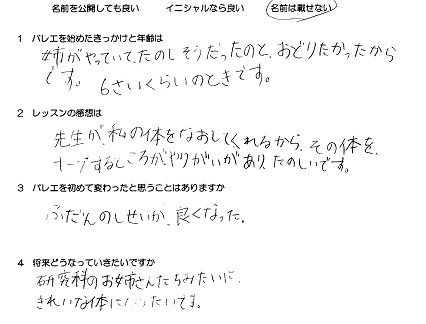 名前を公開しても良い イニシャルなら良い 名前は載せない
1 バレエを始めたきっかけと年齢は
姉がやっていて、たのしそうだったのと、おどりたかったから
です。 6さいくらいのときです。
2 レッスンの感想は
先生が、私の体をなおしてくれるから、その体を、
キープするところがやりがいがあり、たのしいです。
3 バレエを初めて変わったと思うことはありますか
ふだんのしせいが、良くなった。
4 将来どうなっていきたいですか
研究科のお姉さんたちみたいに、
きれいな体になりたいです。